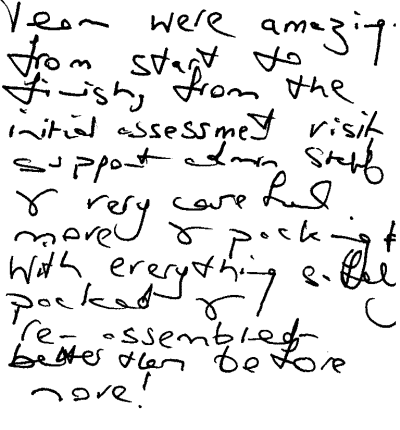 Team were amazing
from start to
finish, from the
initial assessment visit
support admin staff
& very careful
move & packing
with everything safely
packed &
re-assembled
better than before
move!